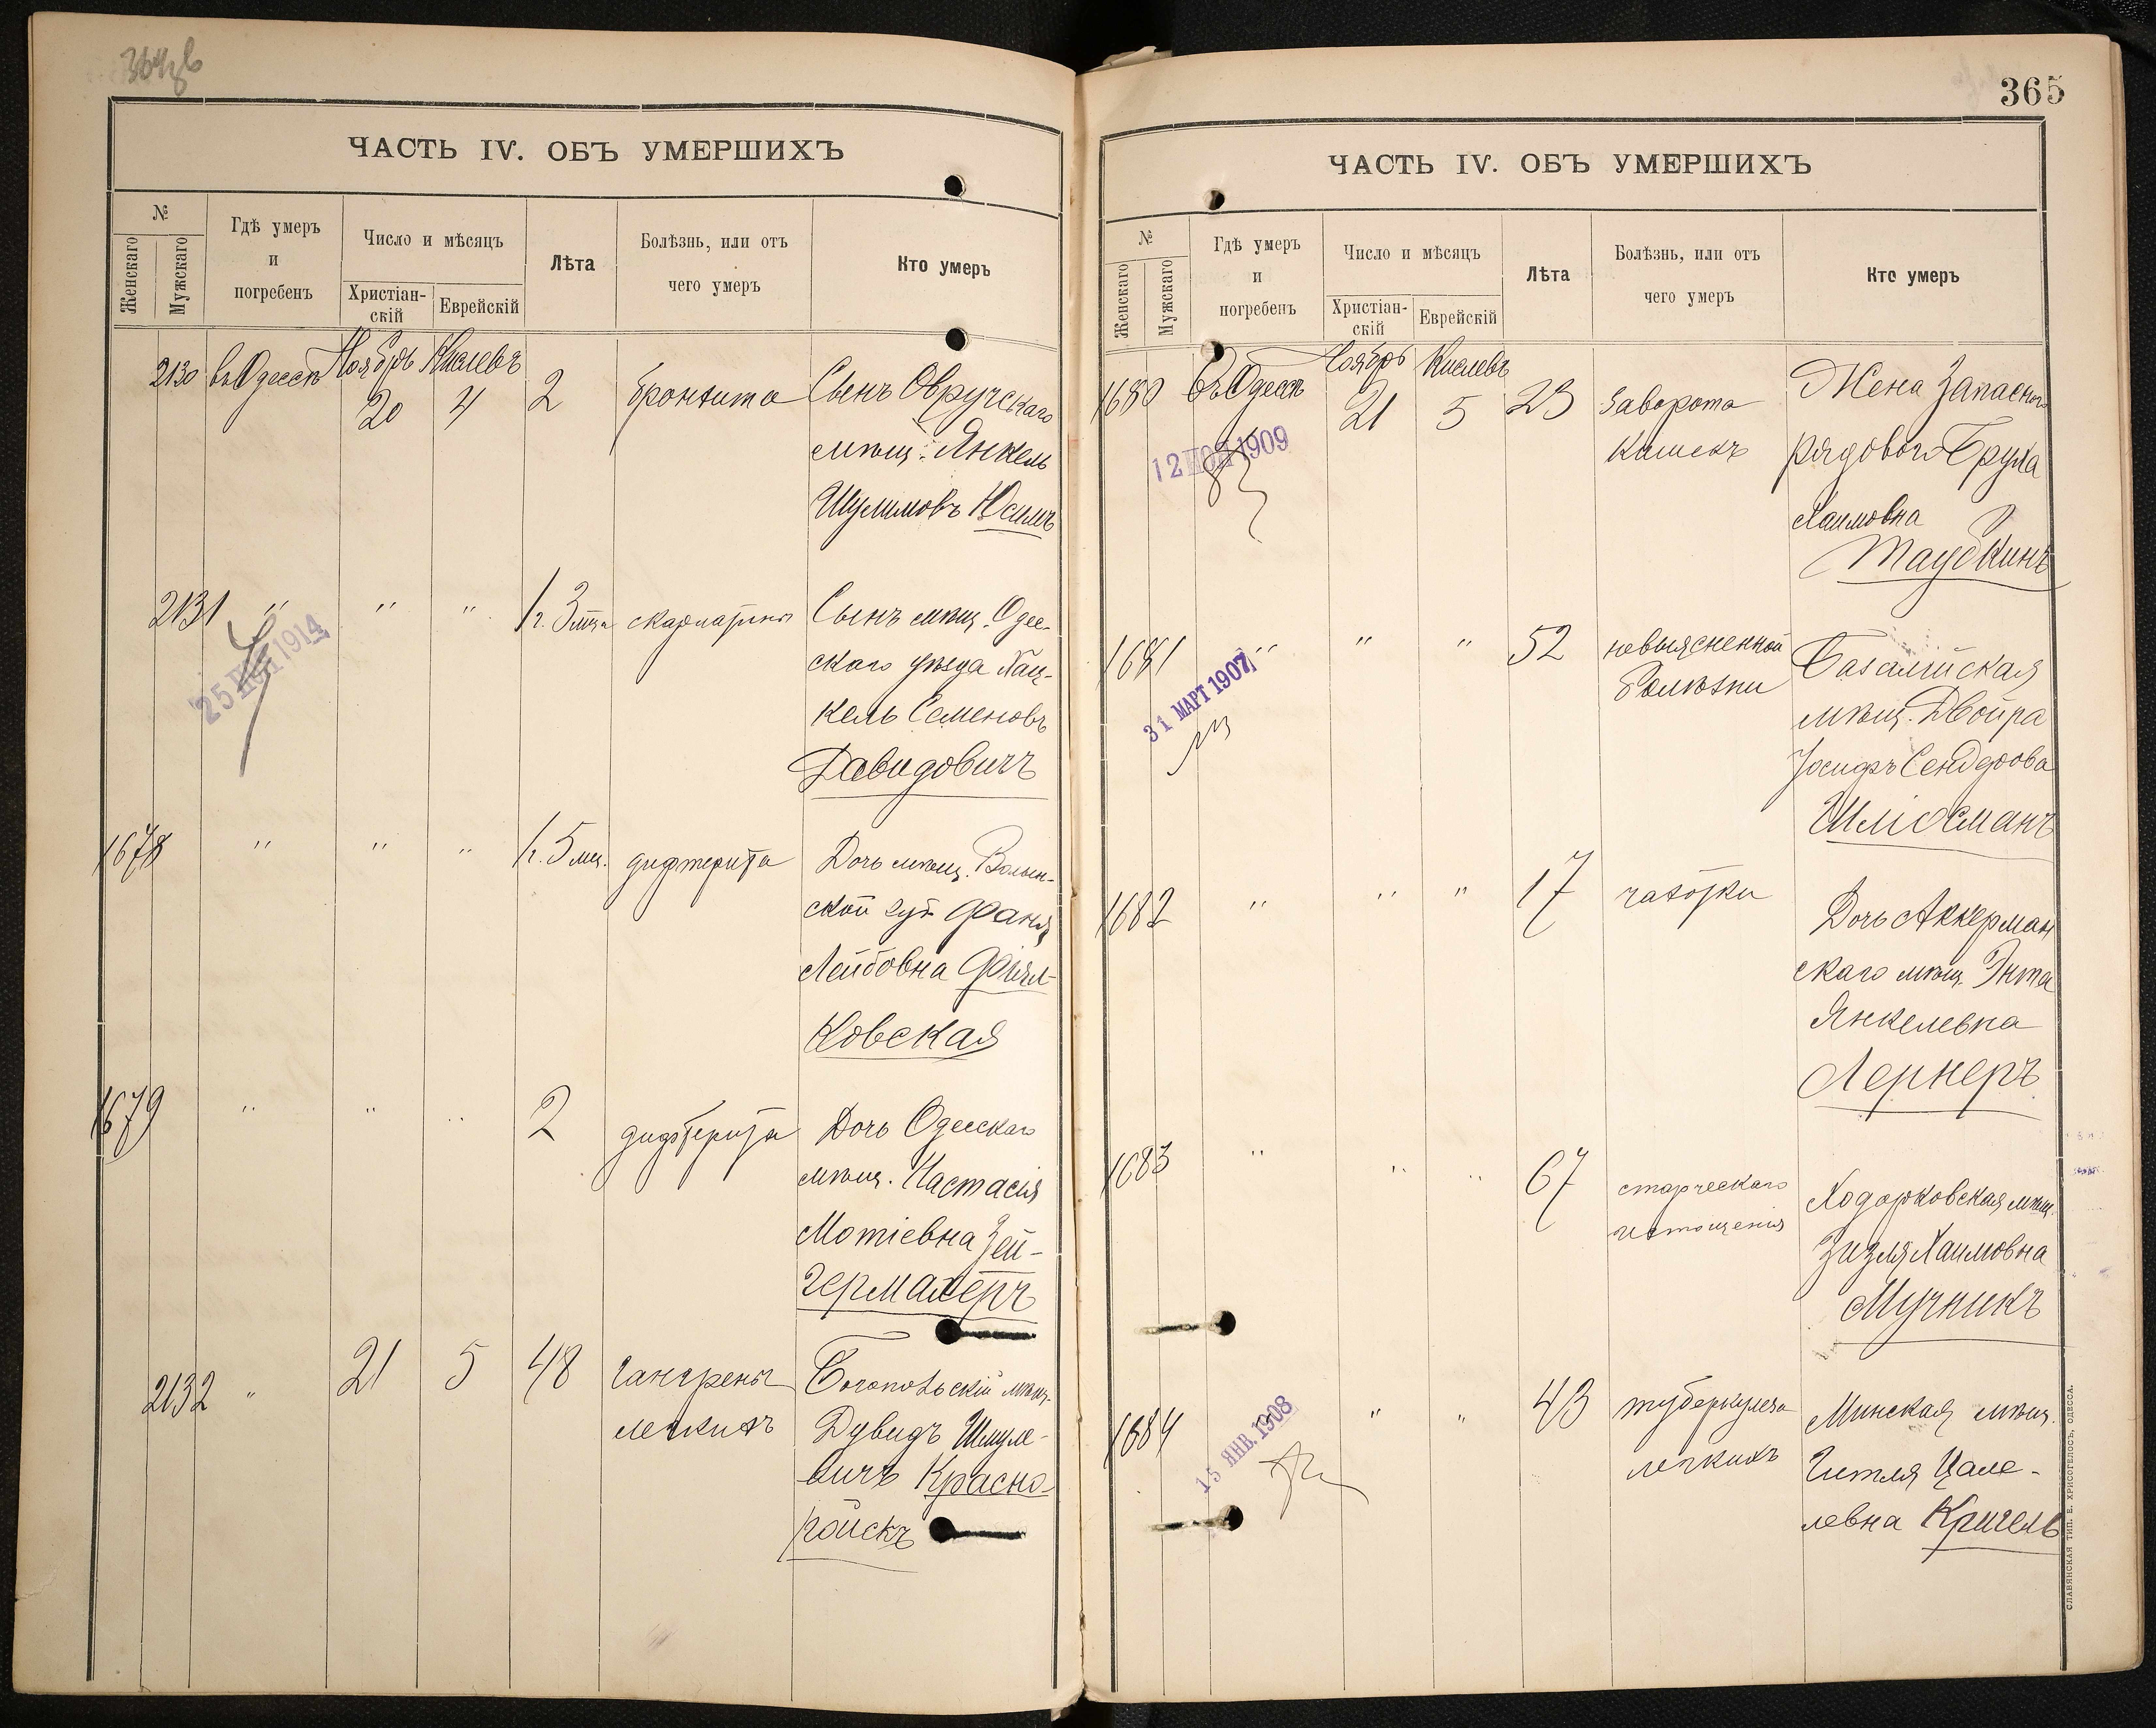 ЧАСТЬ IV. ОБЪ УМЕРШИХЪ
№
Женскаго
Мужскаго
Гдѣ умеръ
и
погребенъ
Число и мѣсяцъ
Христіан-
скій
Еврейскій
Лѣта
Болѣзнь, или отъ
чего умеръ
Кто умеръ
2130 въ Одессѣ Ноябрь 20 Кислевъ 4 2 бронхита Сынъ Овручскаго
мѣщ. Янкель
Шулимовъ Юсимъ
2131 " " " 1 г. 3 мѣс. скарлатины Сынъ мѣщ. Одес-
скаго уѣзда Хац-
кель Семеновъ
Давидовичъ
25 НОЯ 1914
1678 " " " 1 г. 5 мѣс. дифтерита Дочь мѣщ. Волын-
ской губ. Фаня
Лейбовна Фіял-
ковская
1679 " " " 2 дифтерита Дочь Одесскаго
мѣщ. Настасія
Мотіевна Зей-
германеръ
2132 " 21 5 48 гангрены Богопольскій мѣщ.
легкихъ Дувидъ Шмуле-
вичъ Красно-
ройскъ
365
ЧАСТЬ IV. ОБЪ УМЕРШИХЪ
№
Женскаго
Мужскаго
Гдѣ умеръ
и
погребенъ
Число и мѣсяцъ
Христіан-
скій
Еврейскій
Лѣта
Болѣзнь, или отъ
чего умеръ
Кто умеръ
1680 Въ Одессѣ Ноябрь 21 Кислевъ 5 23 заворота Жена Запасного
кишекъ рядового Бруха
Хаимовна
Таубкинъ
12 НОЯ 1909
1681 " " " 52 невыясненной Базалійская
болѣзни мѣщ. Двойра
Іосифъ Сендерова
Шліосманъ
31 МАРТ 1907
1682 " " " 17 чахотки Дочь Аккерман
скаго мѣщ. Энта
Янкелевна
Лернеръ
1683 " " " 67 старческаго Ходорковская мѣщ.
истощенія Зизля Хаимовна
Мучникъ
1684 " " 43 туберкулеза Минская мѣщ.
легкихъ Гитля Цале-
левна Кригель
15 ЯНВ. 1908
СЛАВЯНСКАЯ ТИП. Е. ХРИСОГЕЛОСЪ, ОДЕССА.